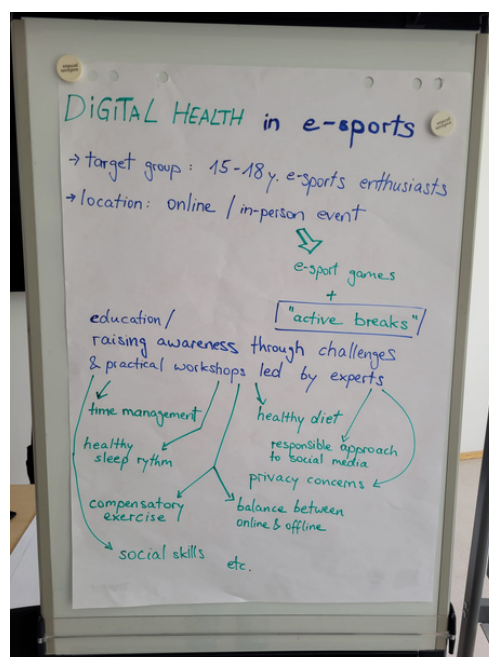 DiGiTAL HEALTH in e-sports
→ target group: 15-18 y. e-sports enthusiasts
→ location: online / in-person event
e-sport games
+
"active breaks"
education/
raising awareness through challenges
& practical workshops led by experts
time management
healthy diet
healthy
sleep rythm
responsible approach
to social media
privacy concerns
compensatory
exercise
balance between
online & offline
social skills
etc.